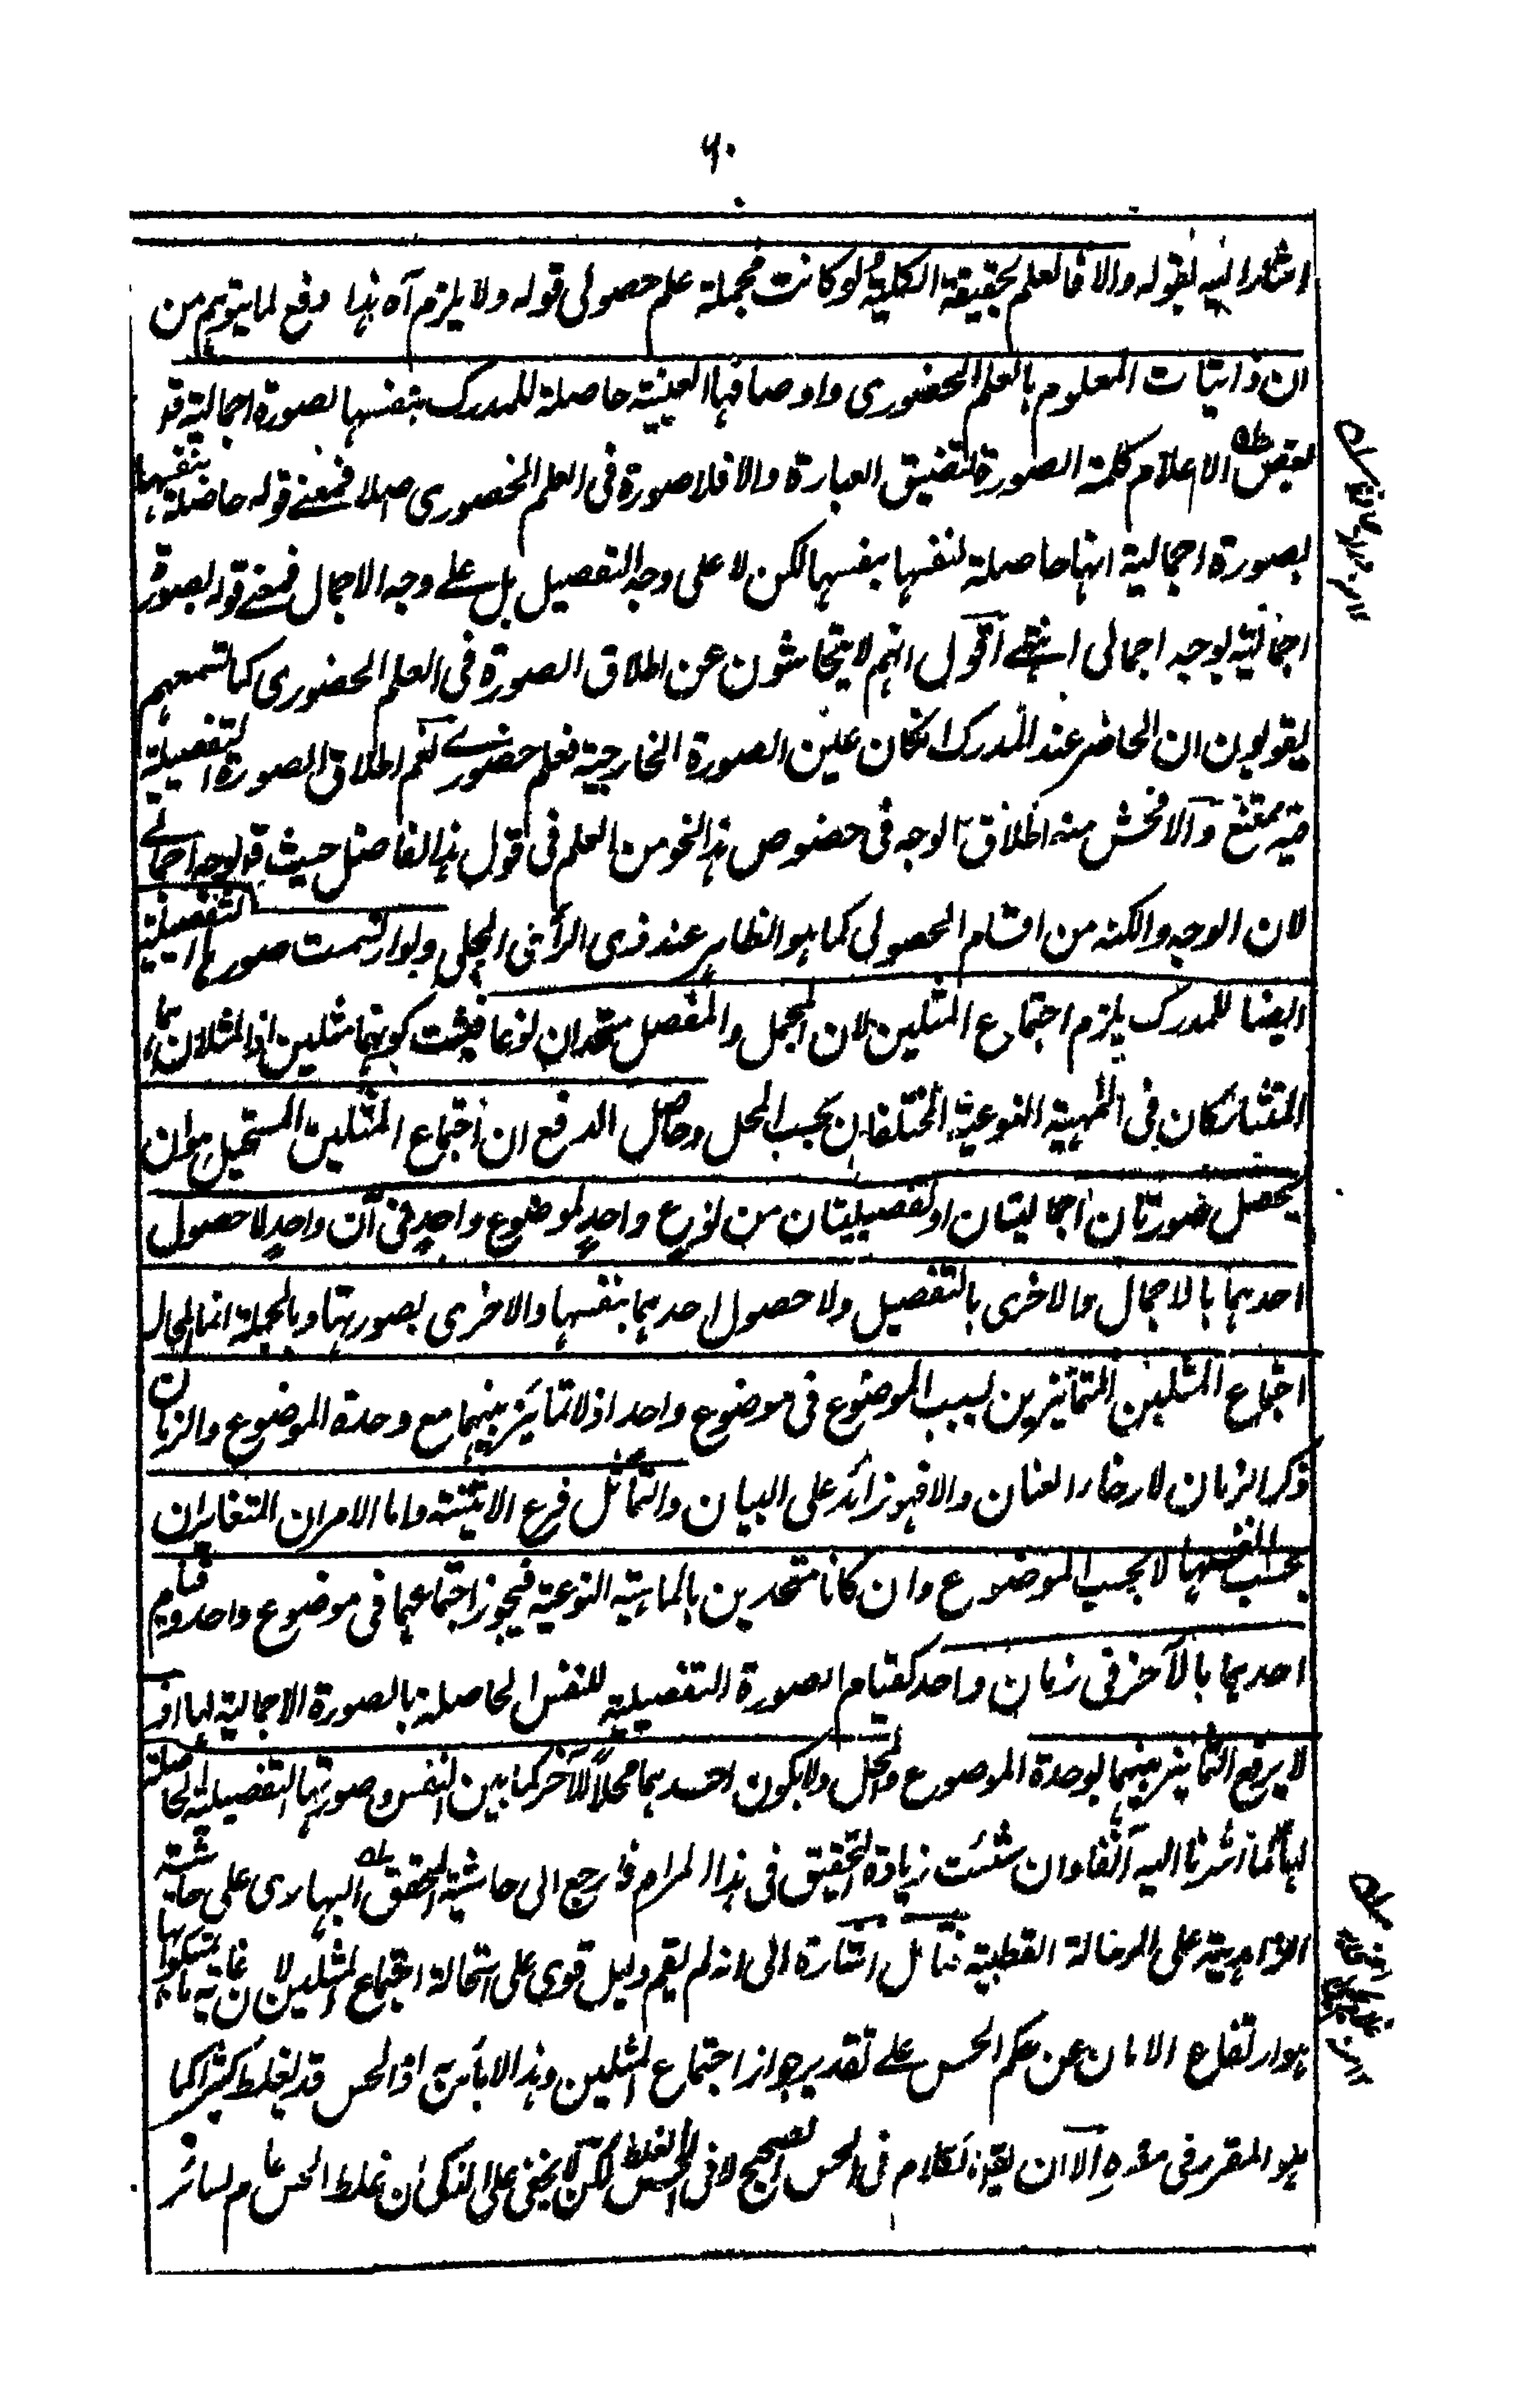 ٦٠
اشار اليه بقوله والا فالعلم بحقيقة الكلية لو كانت مجملة علم حصولى قوله ولا يلزم آه هذا دفع لما يتوهم من
ان ذاتيات المعلوم بالعلم الحضورى واوصافها العينية حاصلة للمدرك بنفسها بصورة اجمالية قو
بعض الاعلام كلمة الصورة لتضيق العبارة والا فلا صورة فى العلم الحضورى اصلا فمعنے قوله حاصلة بنفسها
بصورة اجمالية انها حاصلة لنفسها بنفسها لكن لا على وجه التفصيل بل علے وجه الاجمال فمعنے قوله بصورة
اجمالية بوجه اجمالى انتهے اقول انهم لا يتحاشون عن اطلاق الصورة فى العلم الحضورى كما تسمعهم
يقولون ان الحاضر عند المدرك انكان عين الصورة الخارجية فعلم حضورے نعم اطلاق الصورة التفصيلية
فيه ممتنع والافحش منه اطلاق الوجه فى خصوص هذا النحو من العلم فى قول هذا الفاضل حيث قو بوجه اجمالے
لان الوجه والكنه من اقسام الحصولى كما هو الظاهر عند ذى الرأى الجلى ولو ارتسمت صورها التفصيلية
ايضا للمدرك يلزم اجتماع المثلين لان المجمل والمفصل متحدان نوعا فيثبت كونهما مثلين اذ المثلان هما
المتشاركان فى المهية النوعية المختلفان بحسب المحل وحاصل الدفع ان اجتماع المثلين المستحيل هو ان
يحصل صورتان اجماليتان او تفصيليتان من نوع واحدٍ لموضوع واحدٍ فى آن واحدٍ لا حصول
احدهما بالاجمال والاخرى بالتفصيل ولا حصول احدهما بنفسها والاخرى بصورتها وبالجملة انما المحال
اجتماع المثلين المتمائزين بسبب الموضوع فى موضوع واحد اذ لا تمائز بينهما مع وحدة الموضوع والزمان
ذكر الزمان لارخاء العنان والا فهو زائد على البيان والتماثل فرع الاثنينة واما الامران المتغائران
بحسب انفسهما لا بحسب الموضوع وان كانا متحدين بالماهية النوعية فيجوز اجتماعهما فى موضوع واحد وقيام
احدهما بالآخر فى زمان واحد كقيام الصورة التفصيلية للنفس الحاصلة بالصورة الاجمالية لها اذ
لا يرفع التمائز بينهما لوحدة الموضوع والمحل ولا بكون احدهما محلاً للآخر كما بين النفس وصورتها التفصيلية الحاصلة
لها كما اشرنا اليه آنفا وان شئت زيادة التحقيق فى هذا المرام فارجع الى حاشية المحقق البهارى على حاشية
الزاهدية على الرسالة القطبية فتأمل اشارة الى انه لم يقم دليل قوى على استحالة اجتماع المثلين لان غاية ما تمسكوا بها
هو ارتفاع الامان عن حكم الحس علے تقدير جواز اجتماع المثلين وهذا لا بأس به اذ الحس قد يغلط كثيرا كما
هو المقرر فى مقره الا ان يقو الكلام فى الحس الصحيح لا فى الحس الغلط لكن لا يخفى على الذكى ان غلط الحس عام لسائر